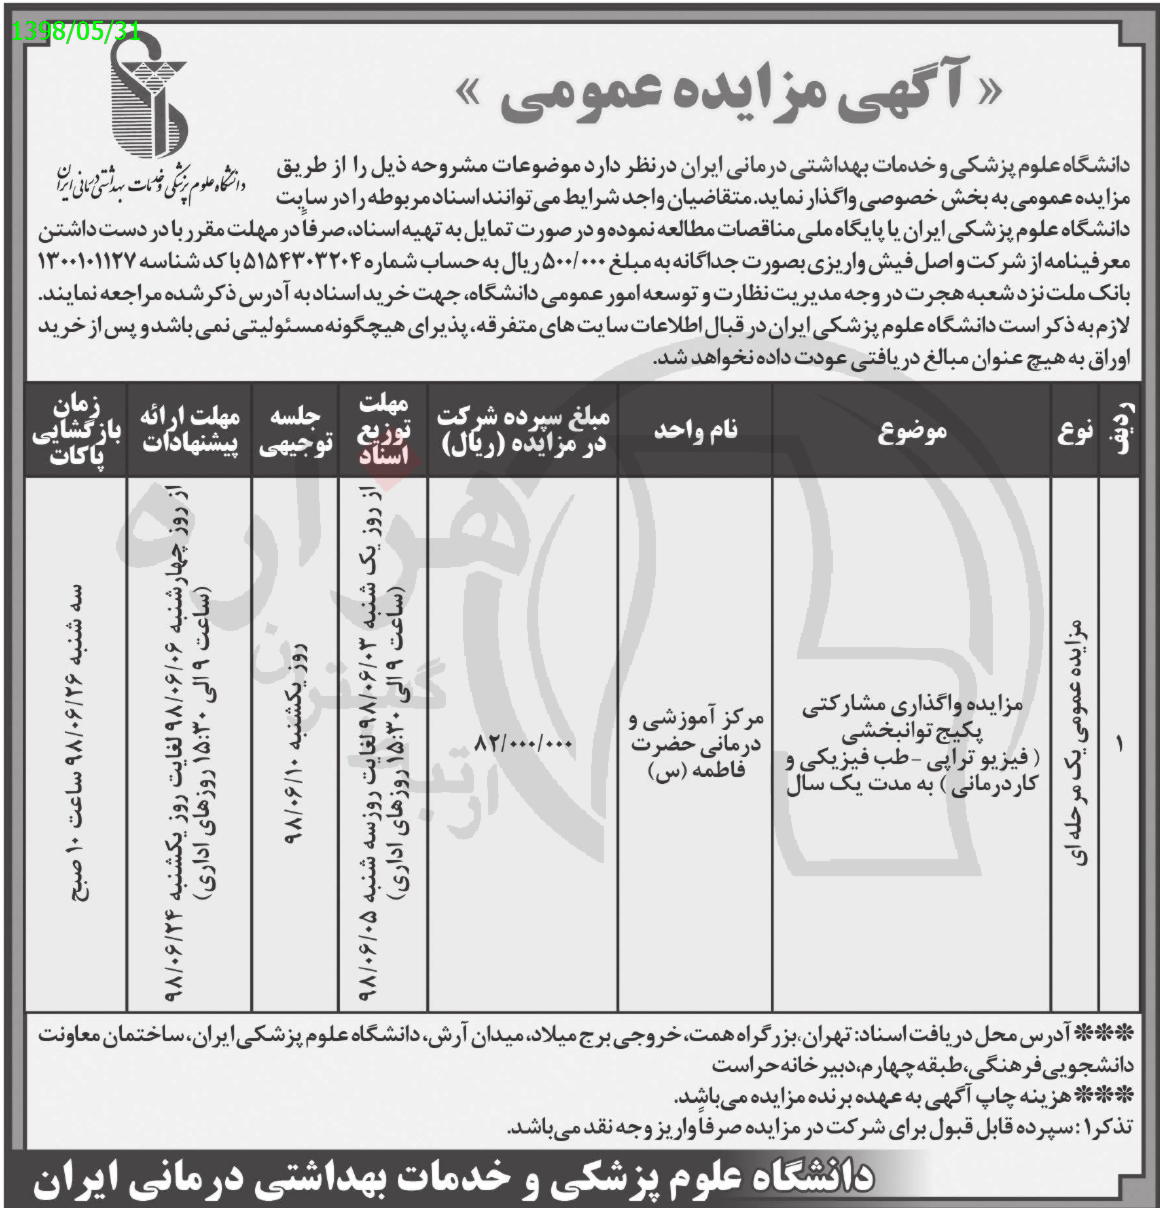 1398/05/31
« آگهی مزایده عمومی »
دانشگاه علوم پزشکی و خدمات بهداشتی درمانی ایران
دانشگاه علوم پزشکی و خدمات بهداشتی درمانی ایران درنظر دارد موضوعات مشروحه ذیل را از طریق
مزایده عمومی به بخش خصوصی واگذار نماید. متقاضیان واجد شرایط می توانند اسناد مربوطه را در سایت
دانشگاه علوم پزشکی ایران یا پایگاه ملی مناقصات مطالعه نموده و در صورت تمایل به تهیه اسناد، صرفاً در مهلت مقرر با در دست داشتن
معرفینامه از شرکت و اصل فیش واریزی بصورت جداگانه به مبلغ ۵۰۰/۰۰۰ ریال به حساب شماره ۵۱۵۴۳۰۳۲۰۴ با کد شناسه ۱۳۰۰۱۰۱۱۲۷
بانک ملت نزد شعبه هجرت در وجه مدیریت نظارت و توسعه امور عمومی دانشگاه، جهت خرید اسناد به آدرس ذکر شده مراجعه نمایند.
لازم به ذکر است دانشگاه علوم پزشکی ایران در قبال اطلاعات سایت های متفرقه، پذیرای هیچگونه مسئولیتی نمی باشد و پس از خرید
اوراق به هیچ عنوان مبالغ دریافتی عودت داده نخواهد شد.
ردیف
نوع
موضوع
نام واحد
مبلغ سپرده شرکت
در مزایده (ریال)
مهلت
توزیع
اسناد
جلسه
توجیهی
مهلت ارائه
پیشنهادات
زمان
بازگشایی
پاکات
۱
مزایده عمومی یک مرحله ای
مزایده واگذاری مشارکتی
پکیج توانبخشی
( فیزیو تراپی - طب فیزیکی و
کاردرمانی ) به مدت یک سال
مرکز آموزشی و
درمانی حضرت
فاطمه (س)
۸۲/۰۰۰/۰۰۰
از روز یک شنبه ۹۸/۰۶/۰۳ لغایت روز سه شنبه ۹۸/۰۶/۰۵
(ساعت ۹ الی ۱۵:۳۰ روزهای اداری)
روز یکشنبه ۹۸/۰۶/۱۰
از روز چهارشنبه ۹۸/۰۶/۰۶ لغایت روز یکشنبه ۹۸/۰۶/۲۴
(ساعت ۹ الی ۱۵:۳۰ روزهای اداری)
سه شنبه ۹۸/۰۶/۲۶ ساعت ۱۰ صبح
هزاره
گستران
ارتباط
❋❋❋ آدرس محل دریافت اسناد: تهران، بزرگراه همت، خروجی برج میلاد، میدان آرش، دانشگاه علوم پزشکی ایران، ساختمان معاونت
دانشجویی فرهنگی، طبقه چهارم، دبیرخانه حراست
❋❋❋ هزینه چاپ آگهی به عهده برنده مزایده می باشد.
تذکر۱: سپرده قابل قبول برای شرکت در مزایده صرفاً واریز وجه نقد می باشد.
دانشگاه علوم پزشکی و خدمات بهداشتی درمانی ایران